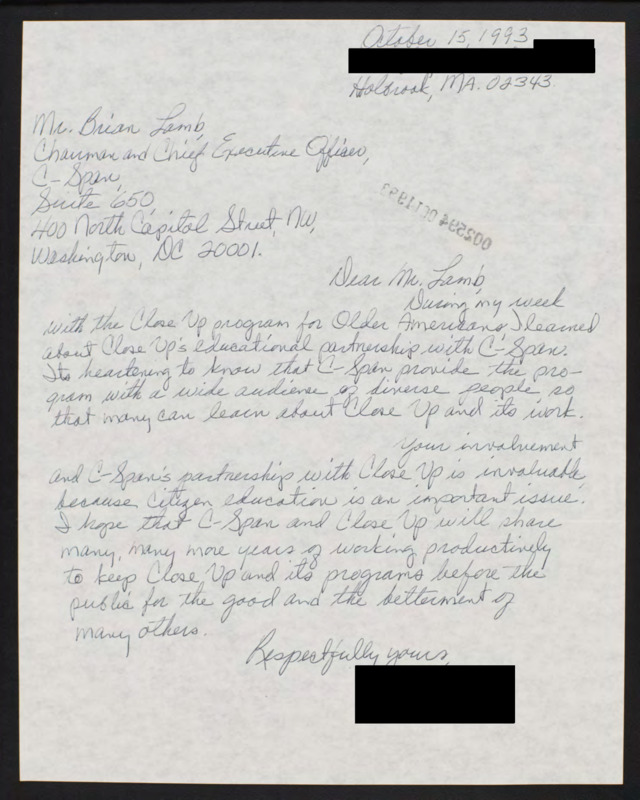 October 15, 1993
Holbrook, MA. 02343.
Mr. Brian Lamb,
Chairman and Chief Executive Officer,
C-Span,
Suite 650
400 North Capital Street, NW,
Washington, DC 20001.
002594 OCT 1993
Dear Mr. Lamb,
During my week
with the Close Up program for Older Americans, I learned
about Close Up's educational partnership with C-Span.
Its heartening to know that C-Span provide the pro-
gram with a wide audience of diverse people, so
that many can learn about Close Up and its work.
Your involvement
and C-Span's partnership with Close Up is invaluable,
because citizen education is an important issue.
I hope that C-Span and Close Up will share
many, many more years of working productively
to keep Close Up and its programs before the
public for the good and the betterment of
many others.
Respectfully yours,